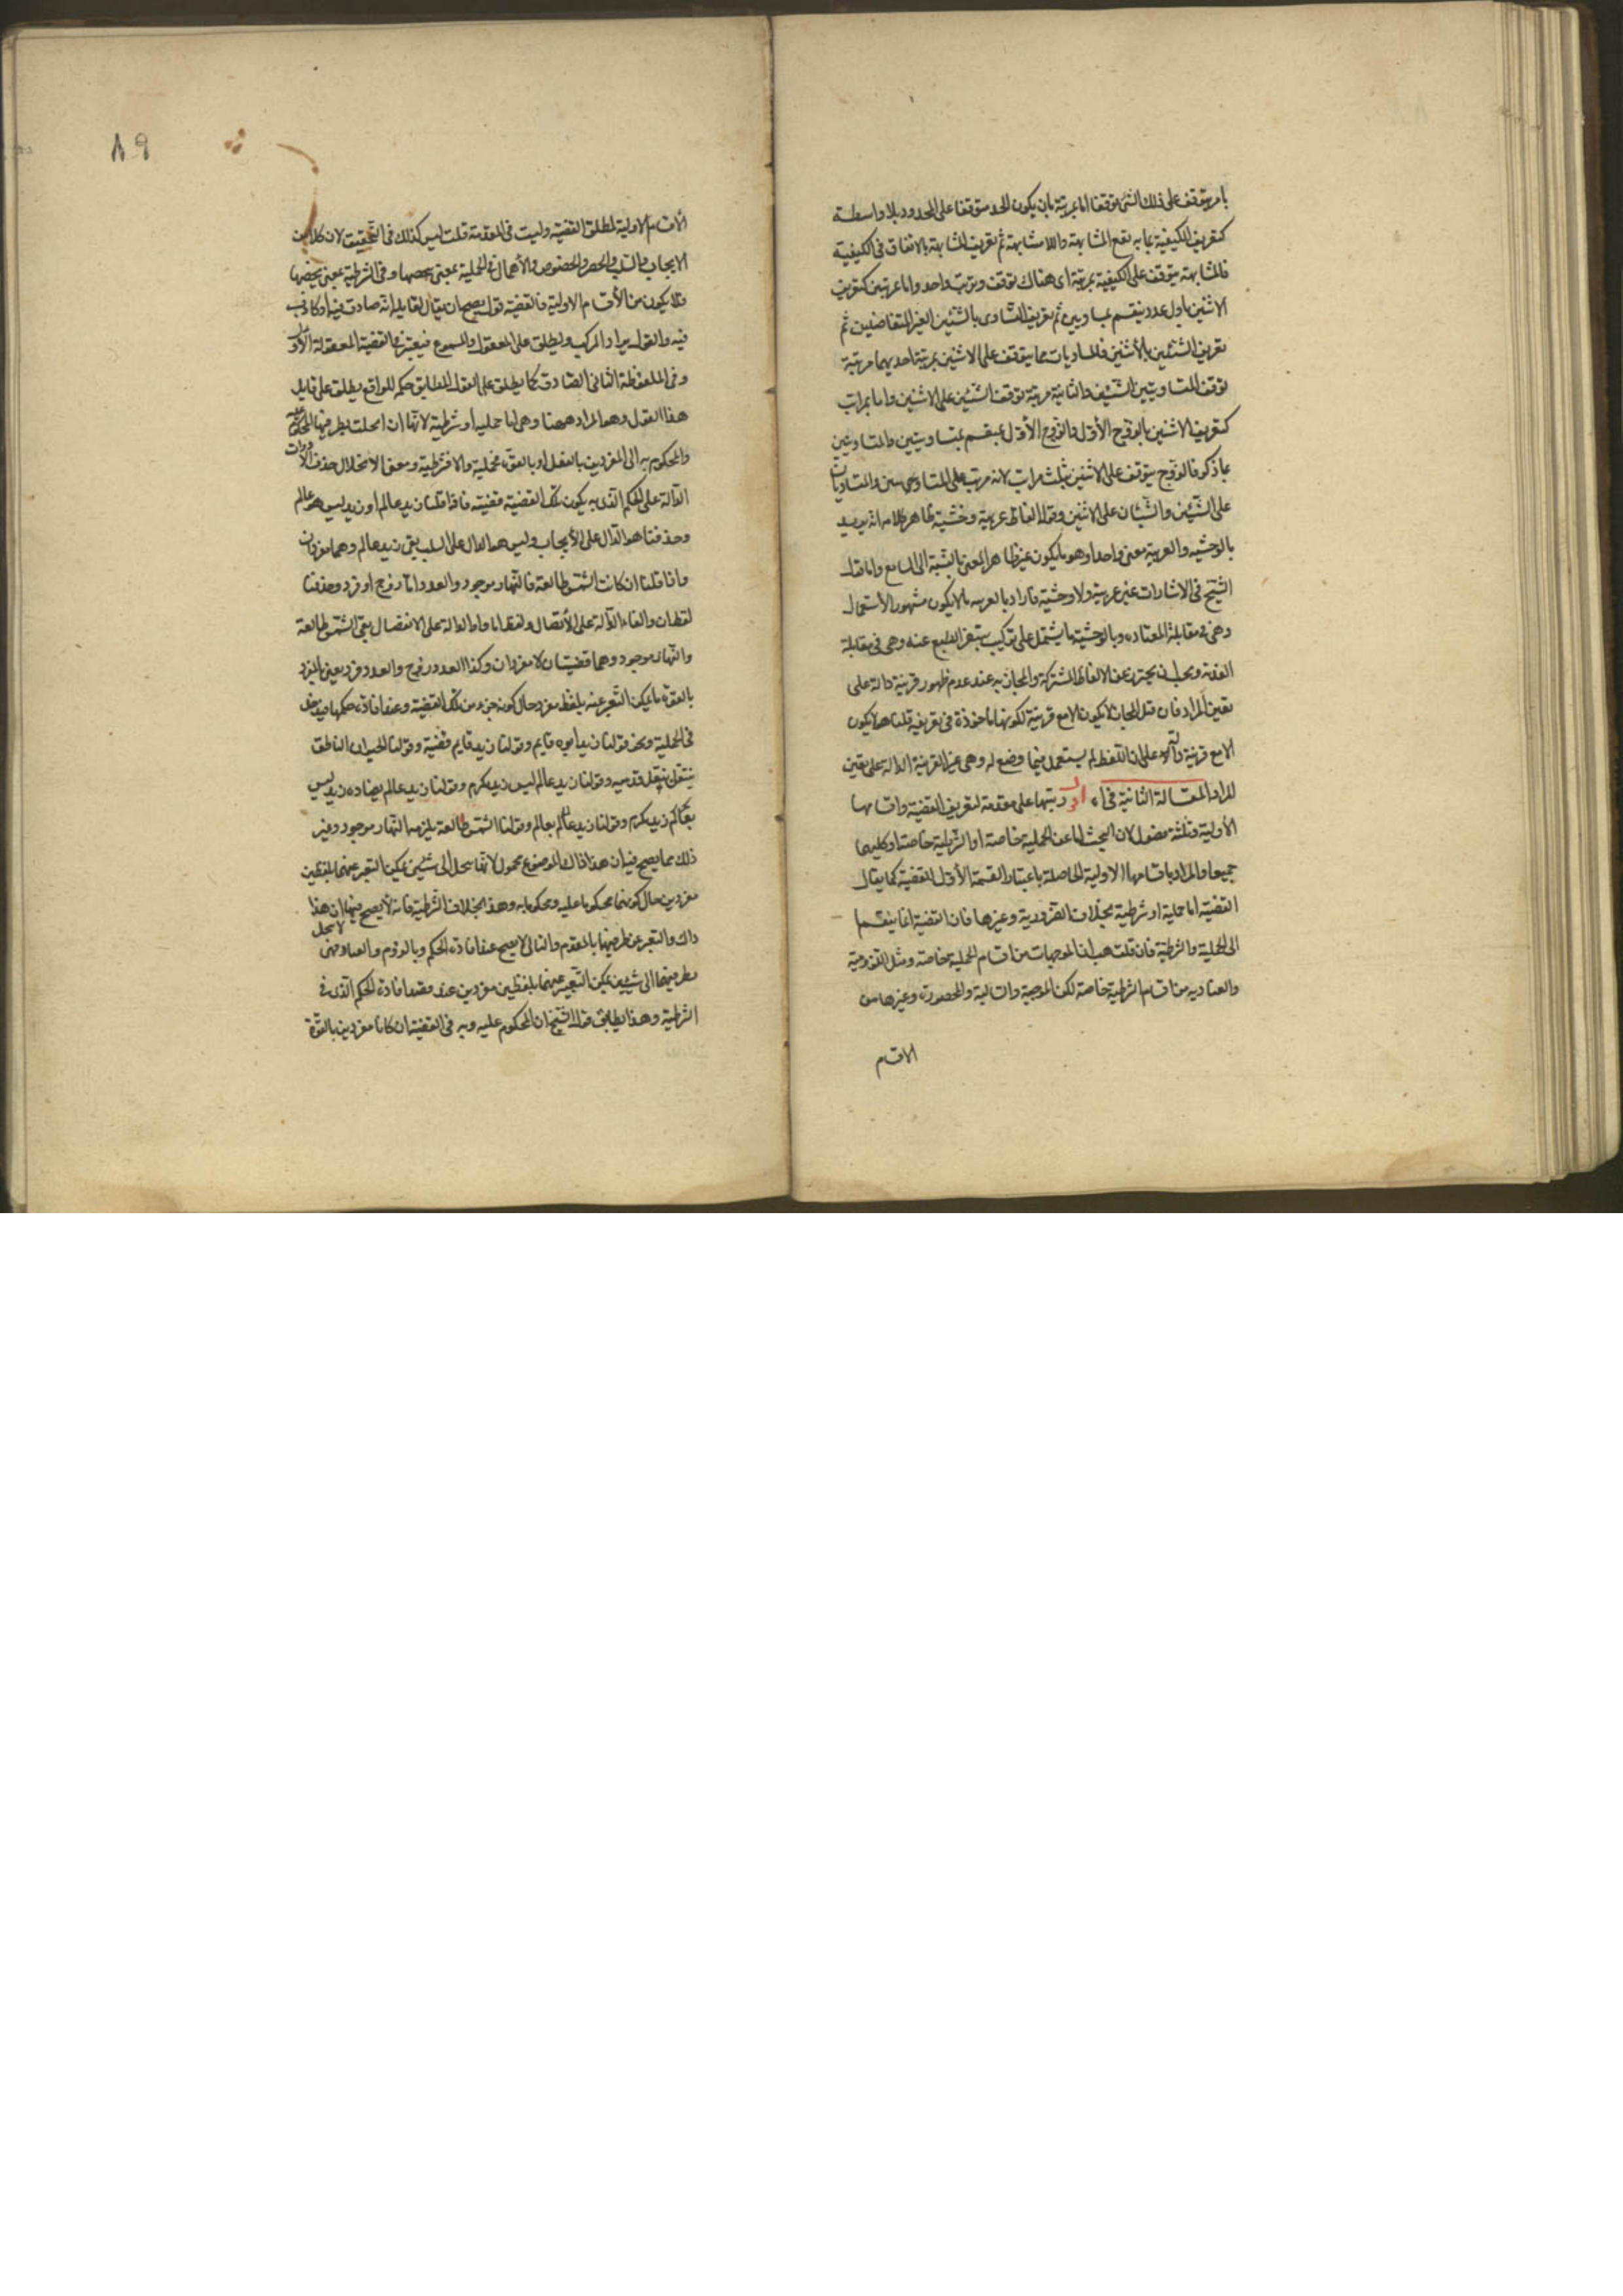 بامر يتوقف على ذلك الشئ توقفا اما بمرتبة بان يكون الحد متوقفا على المحدود بلا واسطة
كتعريف الكيفية بما به تقع المشابهة واللامشابهة ثم تعريف المشابهة بالاتفاق فى الكيفية
فالمشابهة يتوقف على الكيفية بمرتبة اى هناك توقف وترتب واحد واما بمرتبتين كتعريف
الاثنين باول عدد ينقسم بمتساويين ثم تعريف التساوى بالشيئين الغير المتفاضلين ثم
تعريف الشيئين بالأثنين فالمتساويات مما يتوقف على الاثنين بمرتبة احديهما مرتبة
توقف المتساويين الشيئين والثانية مرتبة توقف الشيئين على الاثنين واما بمراتب
كتعريف الاثنين بالزوج الأول والزوج الأول بمنقسم بمتساويين والمتساويين
بما ذكر فالزوج يتوقف على الاثنين بثلث مراتب لانه مرتب على المتساويين والمتساويان
على الشيئين والشيئان على الاثنين وقوله الفاظ غريبة وحشية ظاهر كلامه انه يريد
بالوحشيه والغريبة معنى واحدا وهو ما يكون غير ظاهر المعنى بالنسبة الى السامع واما قول
الشيخ فى الاشارات غير غريبة ولا وحشية فاراد بالغريبه ما لا يكون مشهور الأستعمال
وهى فى مقابلة المعتاده وبالوحشية ما يشتمل على تركيب يتنفر الطبع عنه وهى فى مقابلة
العذبة ويجب ان يحترز عن الالفاظ المشتركة والمجازيه عند عدم ظهور قرينة دالة على
تعين المراد فان قيل المجاز لا يكون الا مع قرينة لكونها ماخوذة فى تعريفه قلنا هو لا يكون
الا مع قرينة دالة على ان اللفظ لم يستعمل فيما وضع له وهى غير القرينة الدالة على تعين
المراد المقالة الثانية فى اه اقول رتبها على مقدمة لتعريف القضية واقسامها
الأولية وثلثة فصول لان البحث اما عن الحملية خاصة او الشرطية خاصة او كليهما
جميعا والمراد باقسامها الاولية الحاصلة باعتبار القسمة الأولى للقضية كما يقال
القضية اما حملية او شرطية بخلاف الضرورية وغيرها فان القضية انما ينقسم
الى الحملية والشرطية فان قلت هب ان الموجهات من اقسام الحملية خاصة ومثل اللزومية
والعنادية من اقسام الشرطية خاصة لكن الموجبة والسالبة والمحصورة وغيرها من
الاقسام
٨٩
الأقسام الاولية لمطلق القضية وليست فى المقدمة قلت ليس كذلك فى التحقيق لان كلا من
الايجاب والسلب والحصر والخصوص والأهمال فى الحملية بمعنى يخصها وفى الشرطية بمعنى يخصها
فلا يكون من الأقسام الاولية فالقضية قول يصح ان يقال لقايله انه صادق فيه او كاذب
فيه والقول يراد المركب ويطلق على المعقول والمسموع فيعتبر فى القضية المعقولة الأول
وفى الملفوظة الثانى الصادق كما يطلق على القول المطابق حكمه للواقع يطلق على قايل
هذا القول وهو المراد ههنا وهى اما حملية أو شرطية لانها ان انحلت بطرفيها المحكوم عليه
والمحكوم به الى المفردين بالفعل او بالقوة فحملية والا فشرطية ومعنى الانحلال حذف الادوات
الدالة على الحكم الذى به يكون تلك القضية قضية فاذا قلنا زيد عالم او زيد ليس هو عالم
وحذفنا هو الدال على الأيجاب وليس هو الدال على السلب بقى زيد عالم وهما مفردان
واذا قلنا ان كانت الشمس طالعة فالنهار موجود والعدد اما زوج او فرد وحذفنا
لفظ ان والفاء الدالة على الأتصال ولفظ اما واو الدالة على الانفصال بقى الشمس طالعة
والنهار موجود وهما قضيتان لا مفردان وكذا العدد زوج والعدد فرد يعنى بالمفرد
بالقوة ما يمكن التعبير عنه بلفظ مفرد حال كونه جزء من تلك القضية وعند افادته حكمها فيدخل
فى الحملية ونحو قولنا زيد ابوه قايم وقولنا زيد قايم قضية وقولنا الحيوان الناطق
ينتقل بنقل قدميه وقولنا زيد عالم ليس زيد بكرم وقولنا زيد عالم يضاده زيد ليس
بعالم وقولنا زيد عالم بعالم وقولنا الشمس طالعة يلزمه النهار موجود وغير
ذلك مما يصح فيه ان هذا ذاك الموضوع محمول لانها ينحل الى شيئين يمكن التعبير عنهما بلفظين
مفردين حال كونهما محكوما عليه ومحكوما به وهذا بخلاف الشرطية فانه لا يصح فيها ان هذا
ذاك والتعبير عن طرفيها بالمقدم والتالى لا يصح عند افادة الحكم وبالزوم والعناد فهى لا ينحل
بطرفيهما الى شيئين يمكن التعبير عنهما بلفظين مفردين عند قصد افادة الحكم الذى فى
الشرطية وهذا يطابق قول الشيخ ان المحكوم عليه وبه فى القضية ان كانا مفردين بالقوة